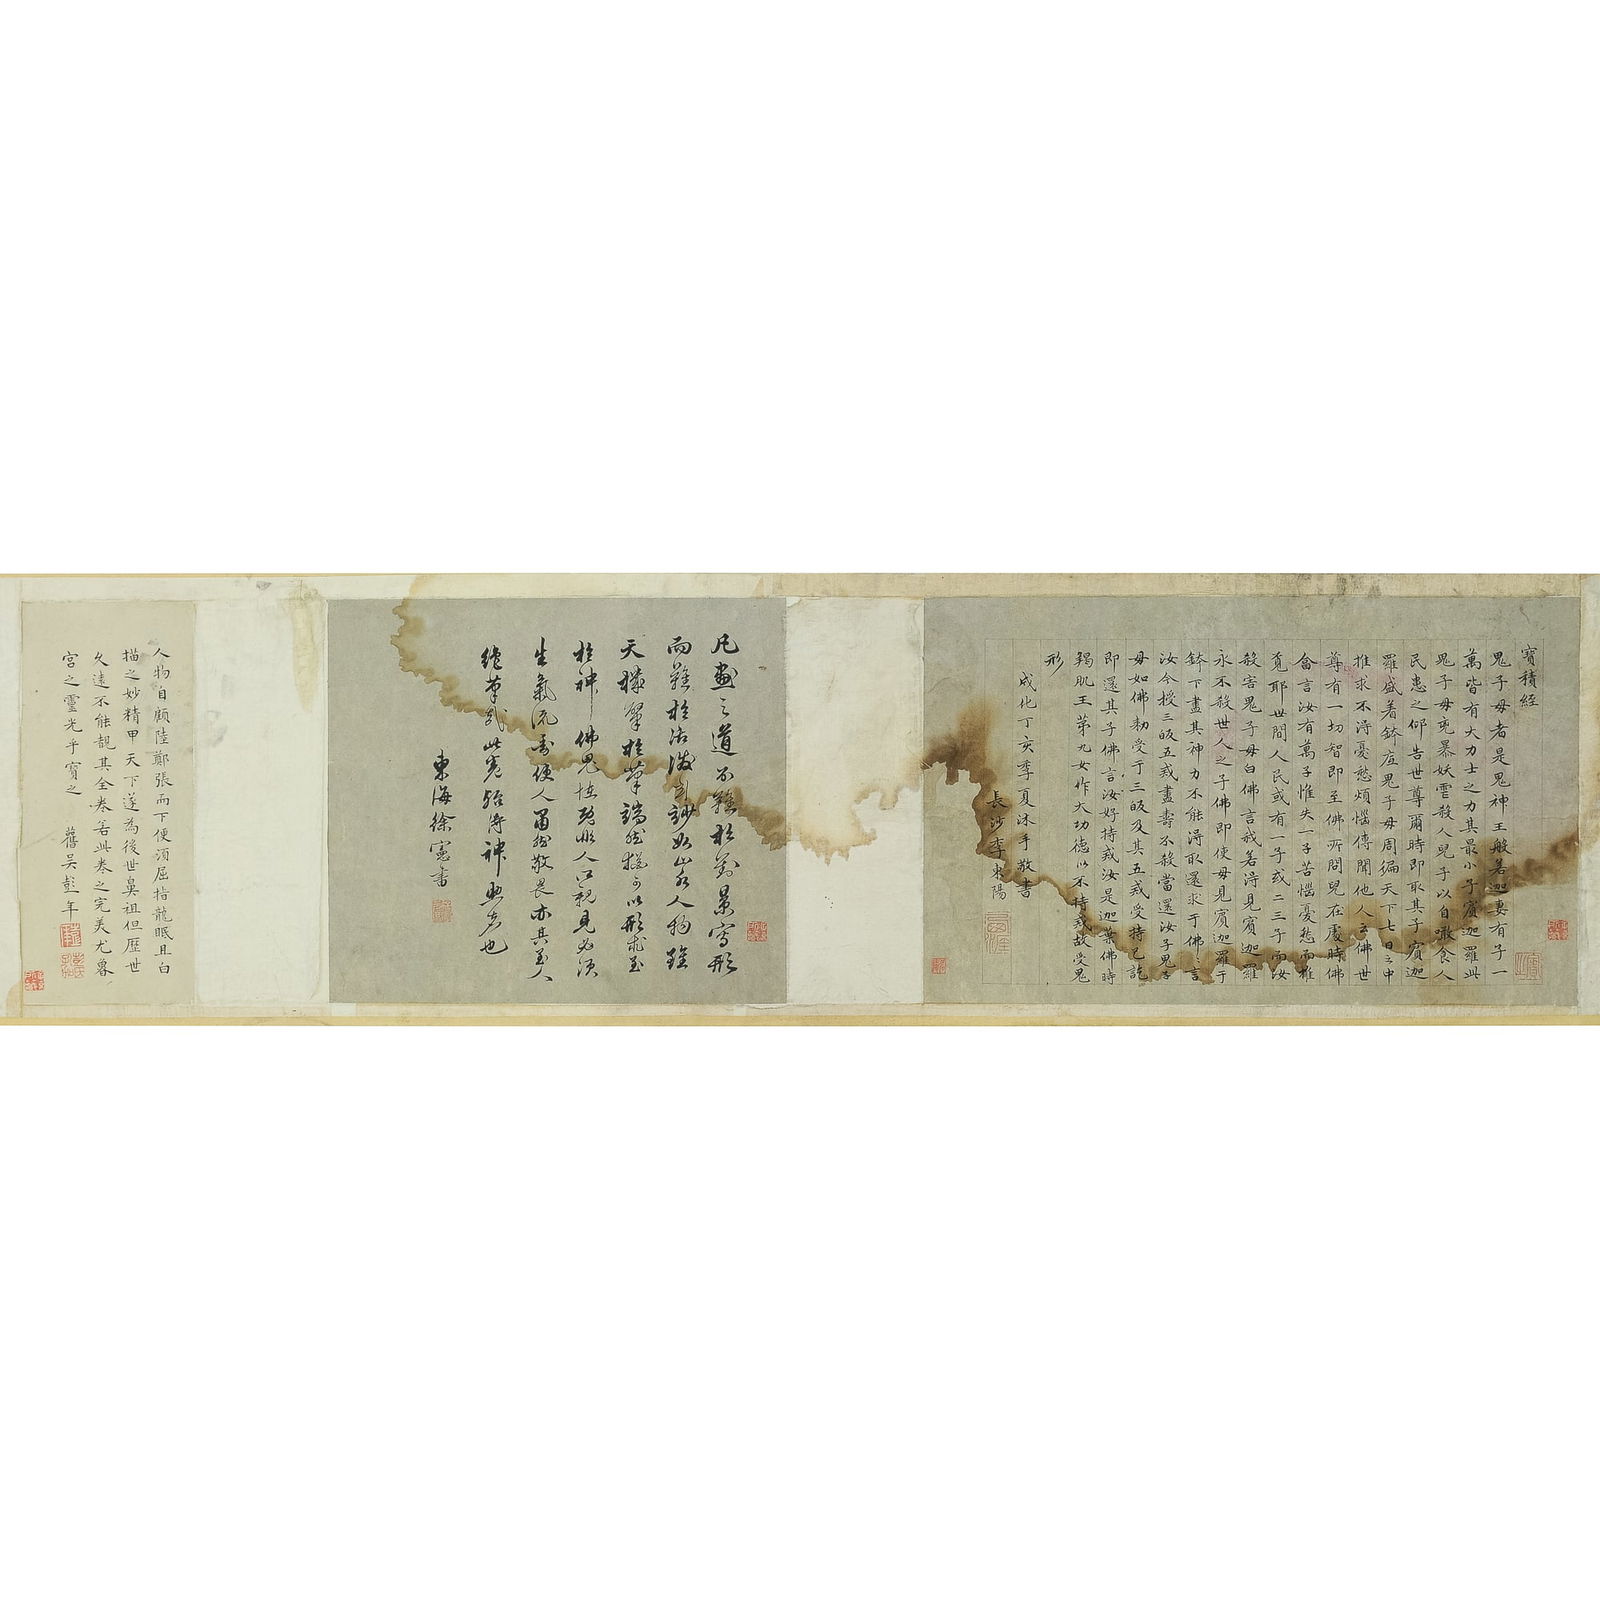 寶積經
鬼子母者是鬼神王般若迦妻有子一
萬皆有大力士之力其最小子賓迦羅此
鬼子母兇暴妖虐殺人兒子以自噉食人
民患之仰告世尊爾時即取其子賓迦
羅盛着鉢底鬼子母周徧天下七日之中
推求不得憂愁煩惱傳聞他人云佛世
尊有一切智即至佛所問兒在處時佛
答言汝有萬子惟失一子苦惱憂愁而推
覓耶世間人民或有一子或二三子而汝
殺害鬼子母白佛言我若得見賓迦羅
永不殺世人之子佛即使母見賓迦羅于
鉢下盡其神力不能得取還求于佛佛言
汝今授三皈五戒盡壽不殺當還汝子鬼子
母如佛勑受于三皈及其五戒受持已訖
即還其子佛言汝好持戒汝是迦葉佛時
羯肌王第九女作大功德以不持戒故受鬼
形
成化丁亥季夏沐手敬書
長沙李東陽
凡畫之道不難於對景寫形
而難於活潑到妙如山水人物雖
天機肇於筆端然猶可以形求至
於神佛鬼怪既非人間親見必須
生氣流動使人肅然敬畏亦其至人
絕筆哉此卷殆得神典者也
東海徐憲書
人物自顧陸鄭張而下便須屈指龍眠且白
描之妙精甲天下遂為後世鼻祖但歷世
久遠不能覩其全卷若此卷之完美尤魯
宮之靈光乎寶之
舊吴彭年